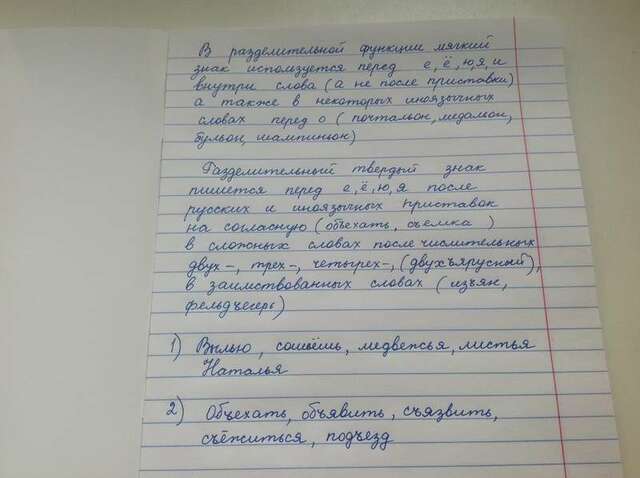 В разделительной функции мягкий
знак используется перед е, ё, ю, я, и
внутри слова (а не после приставки)
а также в некоторых иноязычных
словах перед о (почтальон, медальон,
бульон, шампиньон)
Разделительный твердый знак
пишется перед е, ё, ю, я после
русских и иноязычных приставок
на согласную (объехать, съемка)
в сложных словах после числительных
двух-, трех-, четырех-, (двухъярусный),
в заимствованных словах (изъян,
фельдъегерь)
1) Вылью, сошьёшь, медвежья, листья
Наталья
2) Объехать, объявить, съязвить,
съёжиться, подъезд